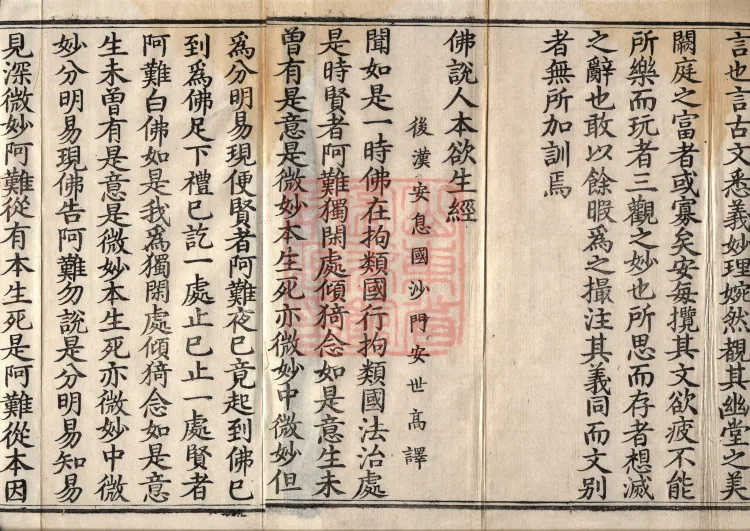 言也言古文悉義妙理婉然覩其幽堂之美
闕庭之富者或寡矣安每攬其文欲疲不能
所樂而玩者三觀之妙也所思而存者想滅
之辭也敢以餘暇為之撮注其義同而文別
者無所加訓焉
佛說人本欲生經
後漢安息國沙門安世高譯
聞如是一時佛在拘類國行拘類國法治處
是時賢者阿難獨閑處傾猗念如是意生未
曾有是意是微妙本生死亦微妙中微妙但
為分明易現便賢者阿難夜已竟起到佛已
到為佛足下禮已訖一處止已止一處賢者
阿難白佛如是我為獨閑處傾猗念如是意
生未曾有是意是微妙本生死亦微妙中微
妙分明易現佛告阿難勿說是分明易知易
見深微妙阿難從有本生死是阿難從本因